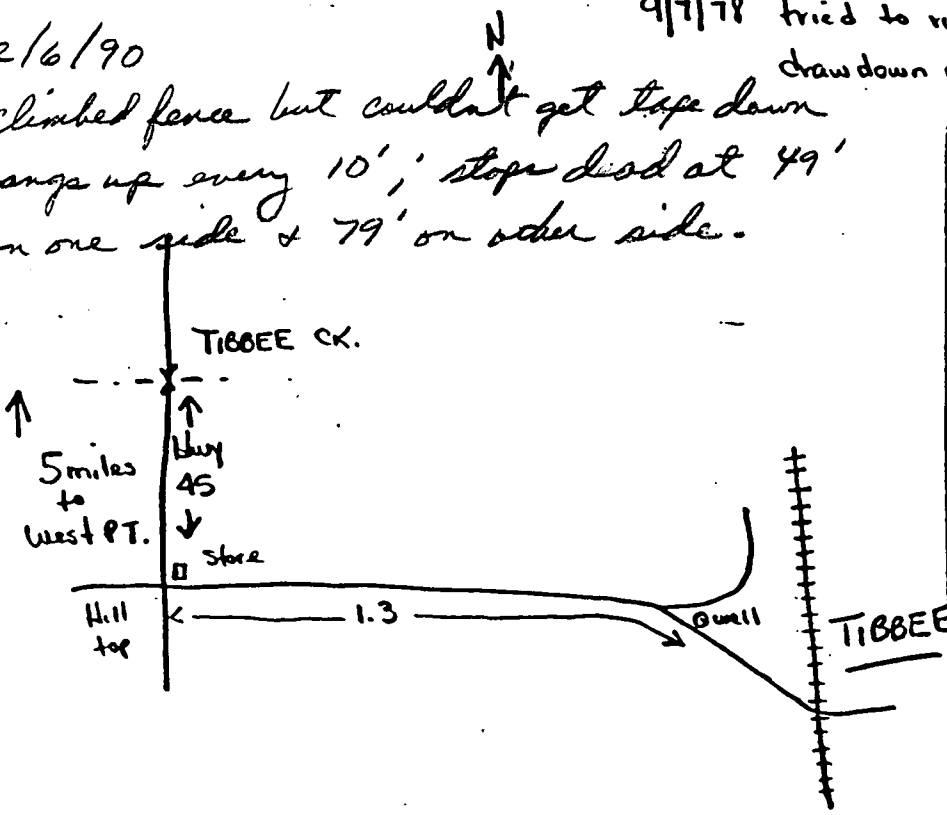 9/7/78 tried to
drawdown
2/6/90
N
climbed fence but couldn't get tape down
hangs up every 10'; stops dead at 49'
on one side & 79' on other side.
TIBBEE CK.
Hwy
45
5 miles
to
West PT.
Store
Hill
top
1.3
well
TIBBEE